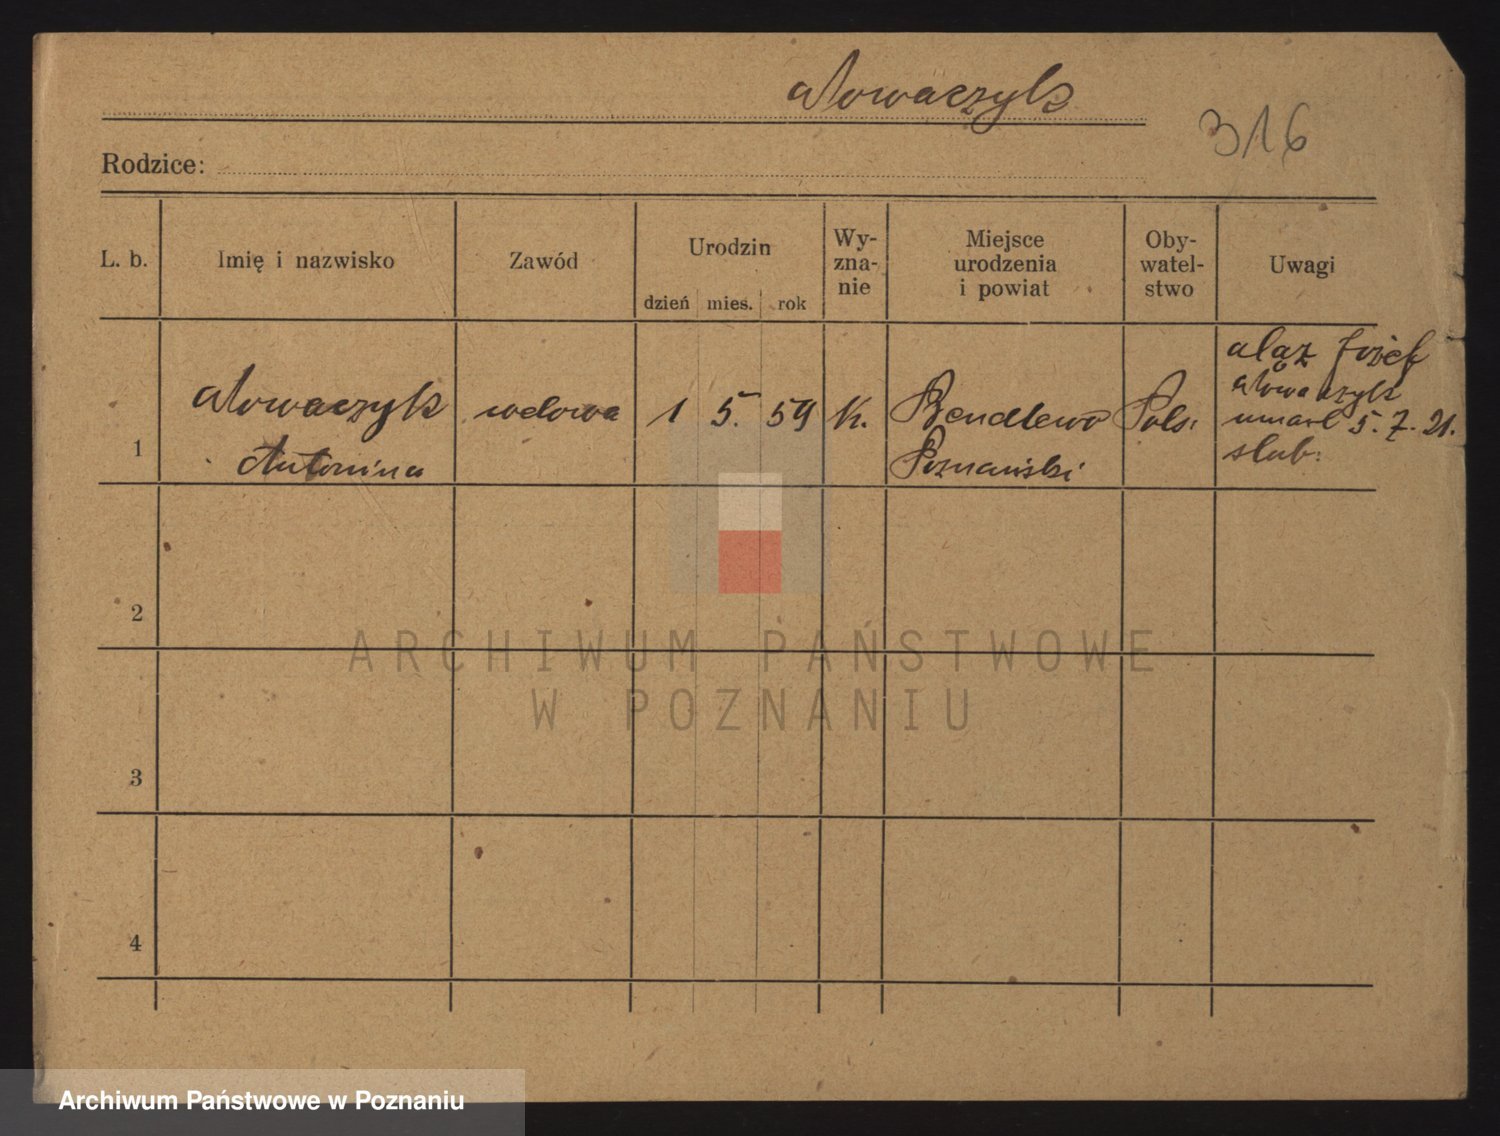 Nowaczyk
316
Rodzice:
L. b.
Imię i nazwisko
Zawód
Urodzin
dzień mies. rok
Wy-
zna-
nie
Miejsce
urodzenia
i powiat
Oby-
watel-
stwo
Uwagi
1
Nowaczyk
Antonina
wdowa
1 5. 59
K.
Bendlewo
Poznański
Pols.
Mąż Józef
Nowaczyk
umarł 5. 7. 21.
slub:
2
3
4
ARCHIWUM PAŃSTWOWE
W POZNANIU
Archiwum Państwowe w Poznaniu